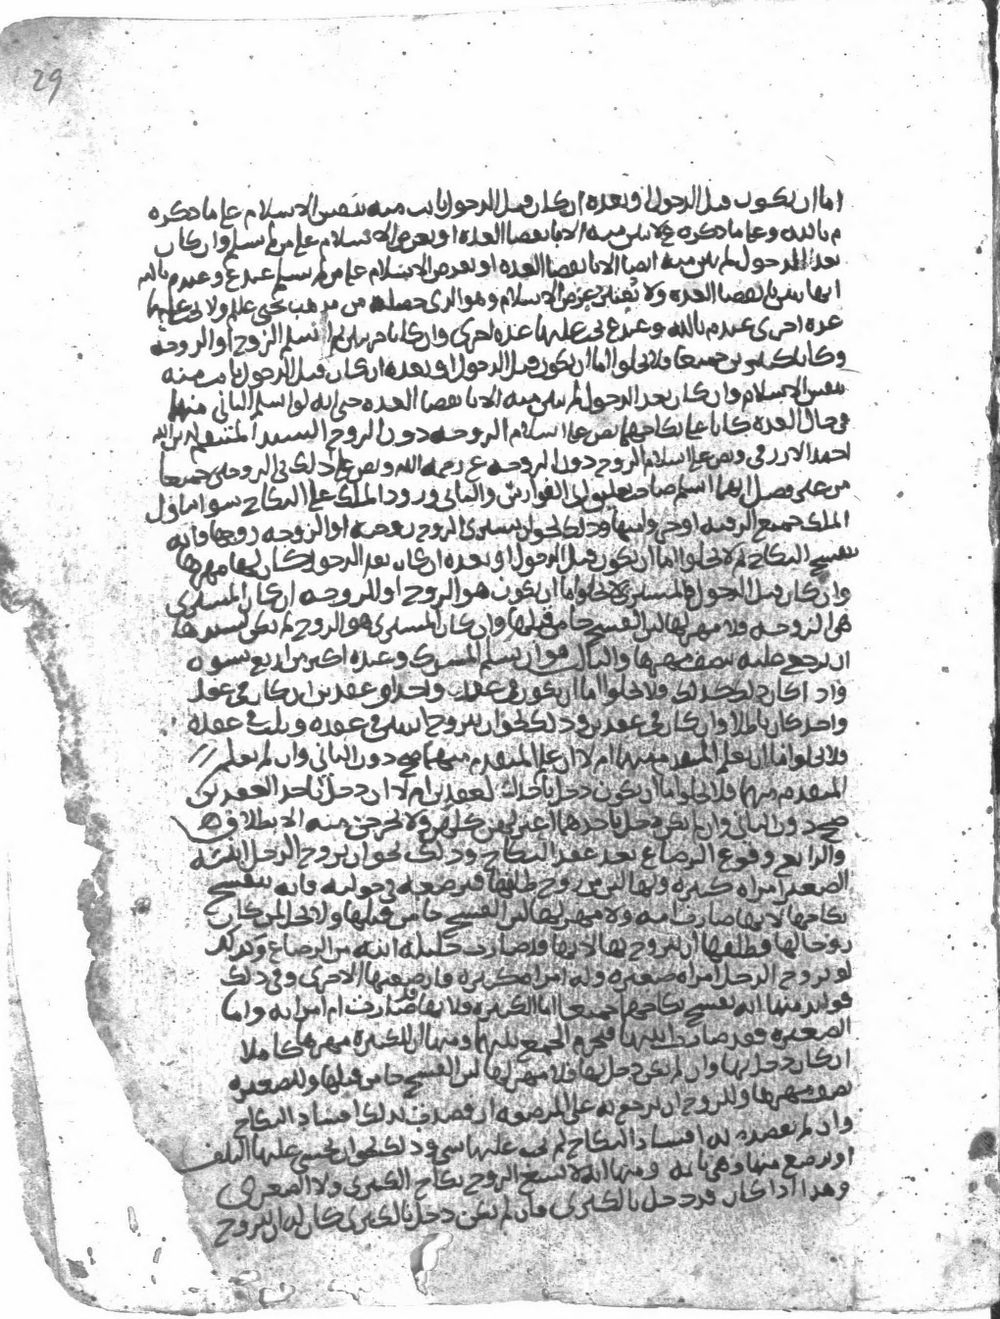 29
اما ان يكون قبل الدخول او بعده ان كان قبل الدخول بانت منه بنفس الاسلام على ما ذكره
م بالله وعلى ما ذكره ع لا تبين منه الا بانقضا العده او بعرض الاسلام على من لم يسلم وان كان
بعد الدخول لم تبن منه ايضا الا بانقضا العده او بعرض الاسلام على من لم يسلم عند ع وعند م بالله
انها تبين بانقضا العده ولا بعرض الاسلام وهو الذي حصله من مذهب يحيى علم ولا يجب عليها
عده اخرى عند م بالله وعند ع يجب عليها عده اخرى وان كانا حربيين ثم اسلم الزوج او الزوجه
وكانا جميعا فلا يخلوا اما ان يكون قبل الدخول او بعده ان كان قبل الدخول بانت منه
بنفس الاسلام وان كان بعد الدخول لم تبن منه الا بانقضا العده حتى انه لو اسلم الثاني منهما
في حال العده كانا على نكاحهما نص على اسلام الزوجه دون الزوج السيد
احمد الازرقي ونص على اسلام الزوج دون الزوجه ع رحمه الله ونص على ذلك في الزوجين جميعا
من والثاني ورود الملك على النكاح سوا تناول
الملك جميع الرقبه او جزوا منها وذلك نحو ان يشتري الزوج زوجته او الزوجه زوجها فانه
ينفسخ النكاح ثم لا يخلوا اما ان يكون قبل الدخول او بعده ان كان بعد الدخول كان لها مهرها
وان كان قبل الدخول فالمشتري لا يخلوا اما ان يكون هو الزوج او الزوجه ان كان المشتري
هي الزوجه فلا مهر لها لان الفسخ جا من قبلها وان كان المشتري هو الزوج لم يكن لسيدها
ان يرجع عليه بنصف مهرها والثالث هو ان يسلم المشرك وعنده اكثر من اربع نسوه
واذا كان كذلك فلا يخلوا اما ان يكون في عقد واحد او عقدين ان كان في عقد
واحد كان باطلا وان كان في عقدين وذلك نحو ان يتزوج اثنتين في عقده وثلث في عقده
فلا يخلوا اما ان يعلم المتقدم منهما ام لا ان علم المتقدم منهما صح دون الثاني وان لم يعلم
المتقدم منهما فلا يخلوا اما ان يكون دخل باحد العقدين ام لا ان دخل باحد العقدين
صح دون الثاني وان لم يكن دخل باحدهما اعتزلهن كلهن ولا يخرجن منه الا بطلاق
والرابع وقوع الرضاع بعد عقد النكاح وذلك نحو ان يزوج الرجل ابنه
الصغير امراه كبيره ولها لبن من زوج طلقها فترضعه في حوليه فانه ينفسخ
نكاحها لانها صارت امه ولا مهر لها لان الفسخ جا من قبلها ولا تحل لمن كان
زوجا لها فطلقها ان يتزوج بها لانها قد صارت حليلة ابنه من الرضاع وكذلك
لو تزوج الرجل امراه صغيره وله امراه كبيره فارضعتها الاخرى وفي ذلك
فوايد منها انه ينفسخ نكاحهما جميعا اما الكبيره فلانها صارت ام امراته واما
الصغيره فقد صارت ابنتها فيحرم الجمع بينهما ومنها ان للكبيره مهرها كاملا
ان كان دخل بها وان لم يكن دخل بها فلا مهر لها لان الفسخ جا من قبلها وللصغيره
نصف مهرها وللزوج ان يرجع به على المرضعه ان قصدت بذلك افساد النكاح
وان لم تقصد به افساد النكاح لم يجب عليها شي وذلك نحو ان يخشى عليها التلف
او ترضع منها وهي نايمه ومنها انه لا يستبيح الزوج نكاح الكبرى ولا الصغرى
وهذا اذا كان قد دخل بالكبرى فان لم يكن دخل بالكبرى كان له ان يتزوج